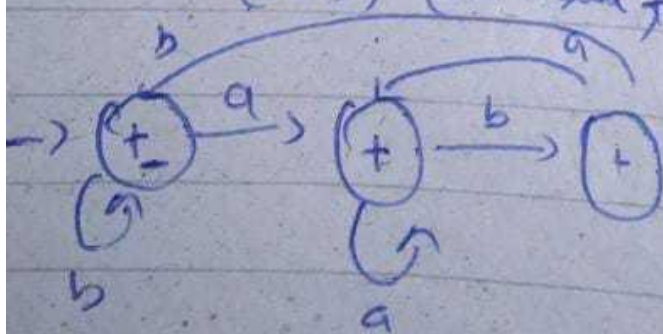 b a
a b
± + +
b
a